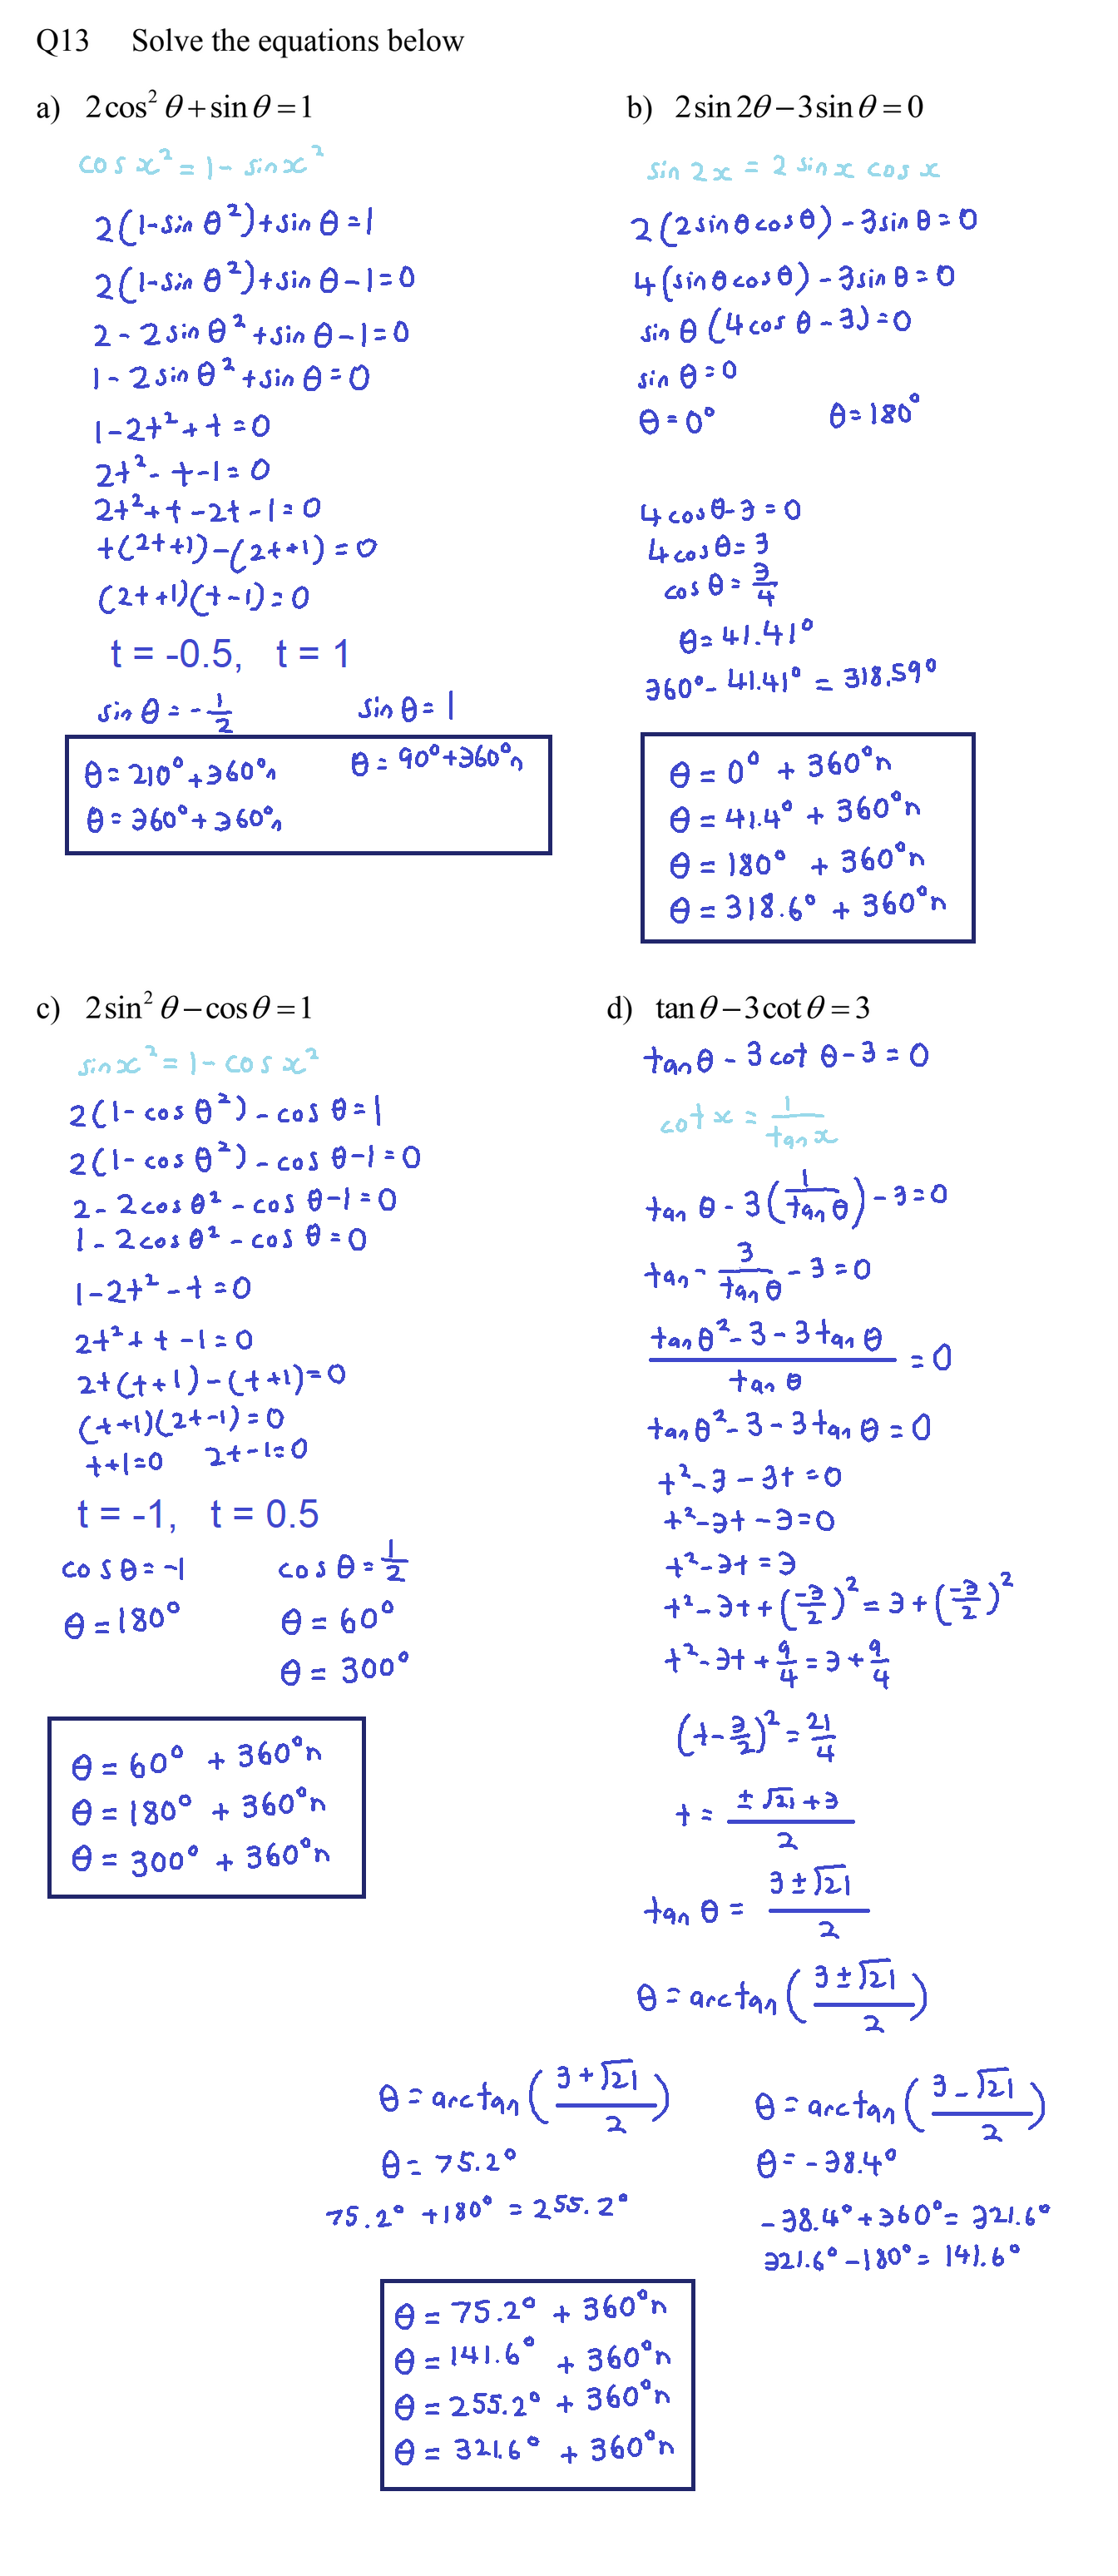 Q13 Solve the equations below
a) 2cos² θ + sin θ = 1
cos x² = 1 - sin x²
2(1-sin θ²)+sin θ = 1
2(1-sin θ²)+sin θ - 1 = 0
2 - 2 sin θ² + sin θ - 1 = 0
1 - 2 sin θ² + sin θ = 0
1 - 2t² + t = 0
2t² - t - 1 = 0
2t² + t - 2t - 1 = 0
t(2t+1) - (2t+1) = 0
(2t+1)(t-1) = 0
t = -0.5, t = 1
sin θ = -1/2 sin θ = 1
θ = 210° + 360°n θ = 90° + 360°n
θ = 360° + 360°n
b) 2sin 2θ − 3sin θ = 0
sin 2x = 2 sin x cos x
2(2sin θ cos θ) - 3sin θ = 0
4(sin θ cos θ) - 3sin θ = 0
sin θ (4cos θ - 3) = 0
sin θ = 0
θ = 0° θ = 180°
4cos θ - 3 = 0
4cos θ = 3
cos θ = 3/4
θ = 41.41°
360° - 41.41° = 318.59°
θ = 0° + 360°n
θ = 41.4° + 360°n
θ = 180° + 360°n
θ = 318.6° + 360°n
c) 2sin² θ − cos θ = 1
sin x² = 1 - cos x²
2(1 - cos θ²) - cos θ = 1
2(1 - cos θ²) - cos θ - 1 = 0
2 - 2cos θ² - cos θ - 1 = 0
1 - 2cos θ² - cos θ = 0
1 - 2t² - t = 0
2t² + t - 1 = 0
2t(t+1) - (t+1) = 0
(t+1)(2t-1) = 0
t+1=0 2t-1=0
t = -1, t = 0.5
cos θ = -1 cos θ = 1/2
θ = 180° θ = 60°
θ = 300°
θ = 60° + 360°n
θ = 180° + 360°n
θ = 300° + 360°n
d) tan θ − 3cot θ = 3
tan θ - 3 cot θ - 3 = 0
cot x = 1/tan x
tan θ - 3(1/tan θ) - 3 = 0
tan - 3/tan θ - 3 = 0
(tan θ² - 3 - 3 tan θ)/tan θ = 0
tan θ² - 3 - 3 tan θ = 0
t² - 3 - 3t = 0
t² - 3t - 3 = 0
t² - 3t = 3
t² - 3t + (-3/2)² = 3 + (-3/2)²
t² - 3t + 9/4 = 3 + 9/4
(t - 3/2)² = 21/4
t = (± √21 + 3)/2
tan θ = (3 ± √21)/2
θ = arctan((3 ± √21)/2)
θ = arctan((3 + √21)/2) θ = arctan((3 - √21)/2)
θ = 75.2° θ = -38.4°
75.2° + 180° = 255.2° -38.4° + 360° = 321.6°
321.6° - 180° = 141.6°
θ = 75.2° + 360°n
θ = 141.6° + 360°n
θ = 255.2° + 360°n
θ = 321.6° + 360°n